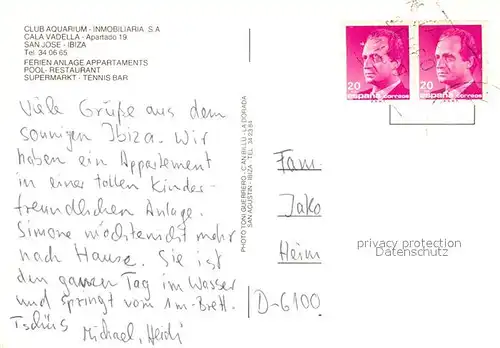 CLUB AQUARIUM - INMOBILIARIA S.A
CALA VADELLA - Apartado 19
SAN JOSE - IBIZA
Tel 34 06 65
FERIEN ANLAGE APPARTAMENTS
POOL - RESTAURANT
SUPERMARKT - TENNIS BAR
Viele Grüße aus dem
sonnigen Ibiza. Wir
haben ein Appartement
in einer tollen Kinder-
freundlichen Anlage.
Simone möchte nicht mehr
nach Hause. Sie ist
den ganzen Tag im Wasser
und springt vom 1m-Brett.
Tschüs
Michael, Heidi
PHOTO TONI GUERRERO - C'AN BILLU - LA DORADA
SAN AGUSTIN - IBIZA - TEL. 34 03 84
20
españa correos
20
españa correos
Fam.
Jako
Heim
D-6100
privacy protection
Datenschutz